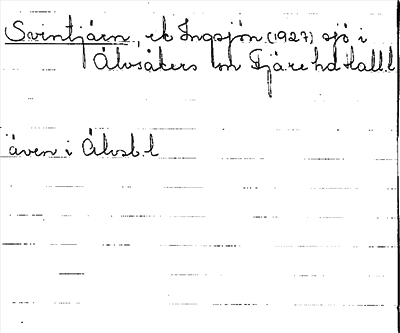 Svintjärn, ek Ingsjön (1927) sjö i
Älvsåkers sn Fjäre hd Halll
även i Älvsb.l